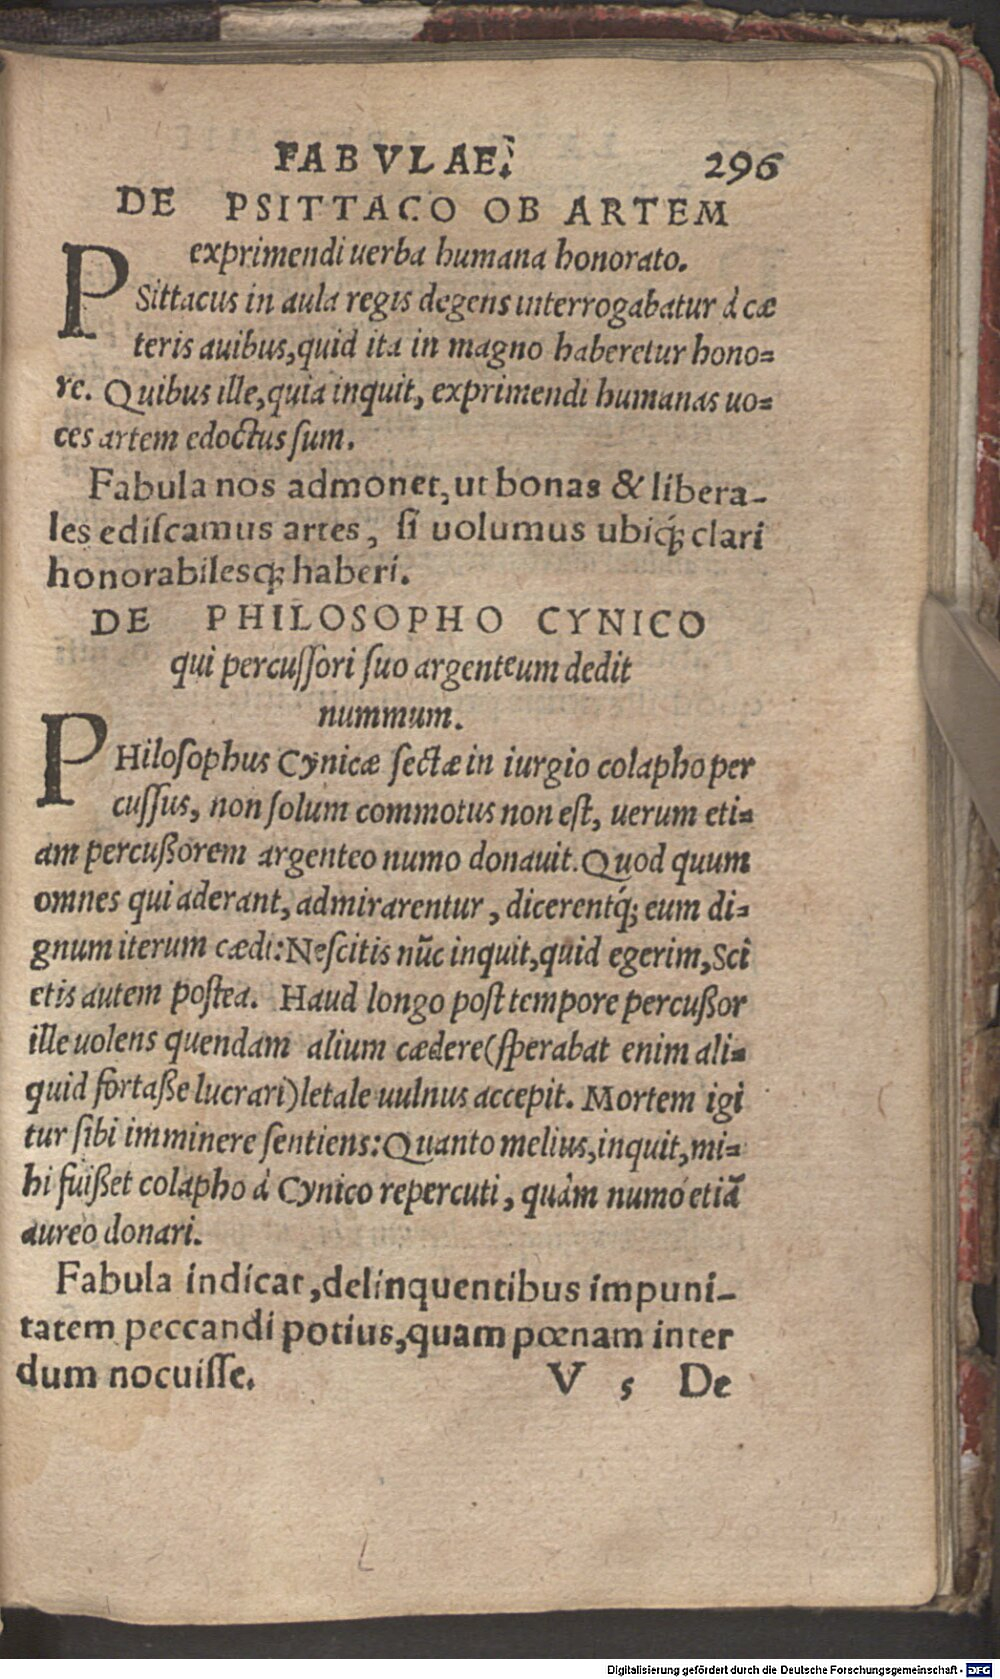 FABVLAE. 296
DE PSITTACO OB ARTEM
exprimendi uerba humana honorato.
PSittacus in aula regis degens interrogabatur à cæ
teris auibus, quid ita in magno haberetur hono=
re. Quibus ille, quia inquit, exprimendi humanas uo=
ces artem edoctus sum.
Fabula nos admonet, ut bonas & libera-
les ediſcamus artes, ſi uolumus ubiq́; clari
honorabilesq; haberi.
DE PHILOSOPHO CYNICO
qui percuſſori ſuo argenteum dedit
nummum.
PHiloſophus Cynicæ ſectæ in iurgio colapho per
cuſſus, non ſolum commotus non eſt, uerum eti=
am percußorem argenteo numo donauit. Quod quum
omnes qui aderant, admirarentur, dicerentq́; eum di=
gnum iterum cædi: Neſcitis nūc inquit, quid egerim, Sci
etis autem poſtea. Haud longo poſt tempore percußor
ille uolens quendam alium cædere (ſperabat enim ali=
quid fortaße lucrari) letale uulnus accepit. Mortem igi
tur ſibi imminere ſentiens: Quanto melius, inquit, mi=
hi fuißet colapho à Cynico repercuti, quàm numo etiā
aureo donari.
Fabula indicat, delinquentibus impuni-
tatem peccandi potius, quam pœnam inter
dum nocuiſſe. V 5 De
Digitalisierung gefördert durch die Deutsche Forschungsgemeinschaft - DFG